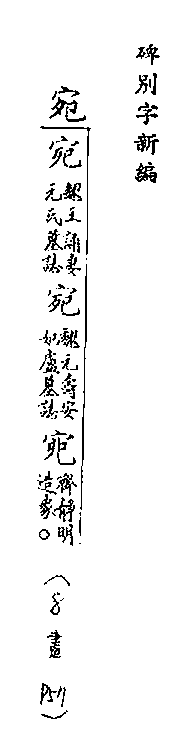 碑別字新編
宛
宛 魏王誦妻元氏墓誌 宛 魏元壽安妃盧墓誌 宛 齊靜明造象○
(8畫 P57)